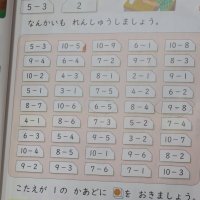 5－3 2
なんかいも れんしゅうしましょう。
5－3 10－5 10－9 6－1 10－8
9－4 6－4 8－2 2－1 6－2
10－2 4－3 8－1 10－1 9－2
3－1 8－4 5－1 8－3 5－2
8－7 10－6 9－1 6－5 9－8
4－1 8－6 7－3 8－5 7－4
6－3 5－4 9－5 7－2 10－3
10－4 8－6 7－5 9－7 7－1
9－2 9－3 7－6 7－1 10－7
こたえが 1の かあどに を おきましょう。